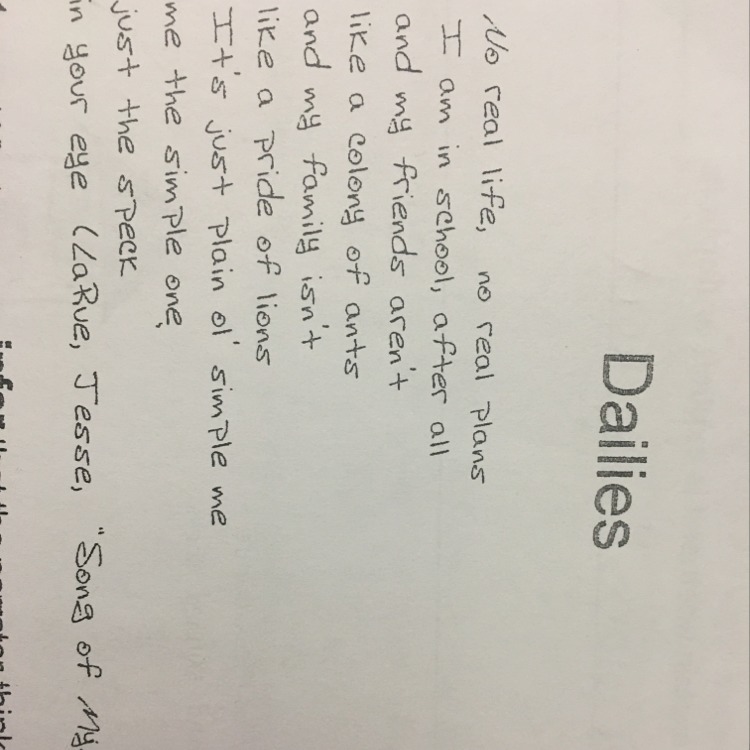 Dailies
No real life, no real plans
I am in school, after all
and my friends aren't
like a colony of ants
and my family isn't
like a pride of lions
It's just plain ol' simple me
me the simple one,
just the speck
in your eye (LaRue, Jesse, "Song of My
infer that the narrator think